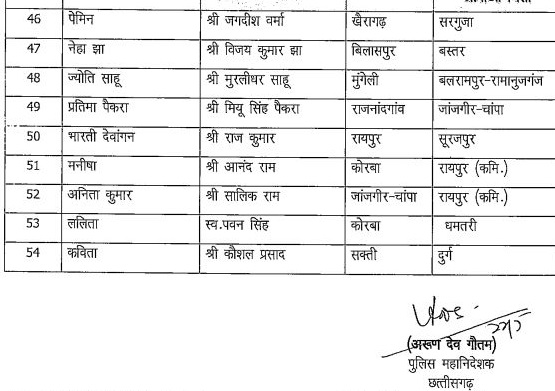 46 पेमिन श्री जगदीश वर्मा खैरागढ़ सरगुजा
47 नेहा झा श्री विजय कुमार झा बिलासपुर बस्तर
48 ज्योति साहू श्री मुरलीधर साहू मुंगेली बलरामपुर-रामानुजगंज
49 प्रतिमा पैकरा श्री मियू सिंह पैकरा राजनांदगांव जांजगीर-चांपा
50 भारती देवांगन श्री राज कुमार रायपुर सूरजपुर
51 मनीषा श्री आनंद राम कोरबा रायपुर (कमि.)
52 अनिता कुमार श्री सालिक राम जांजगीर-चांपा रायपुर (कमि.)
53 ललिता स्व.पवन सिंह कोरबा धमतरी
54 कविता श्री कौशल प्रसाद सक्ती दुर्ग
(अरूण देव गौतम)
पुलिस महानिदेशक
छत्तीसगढ़